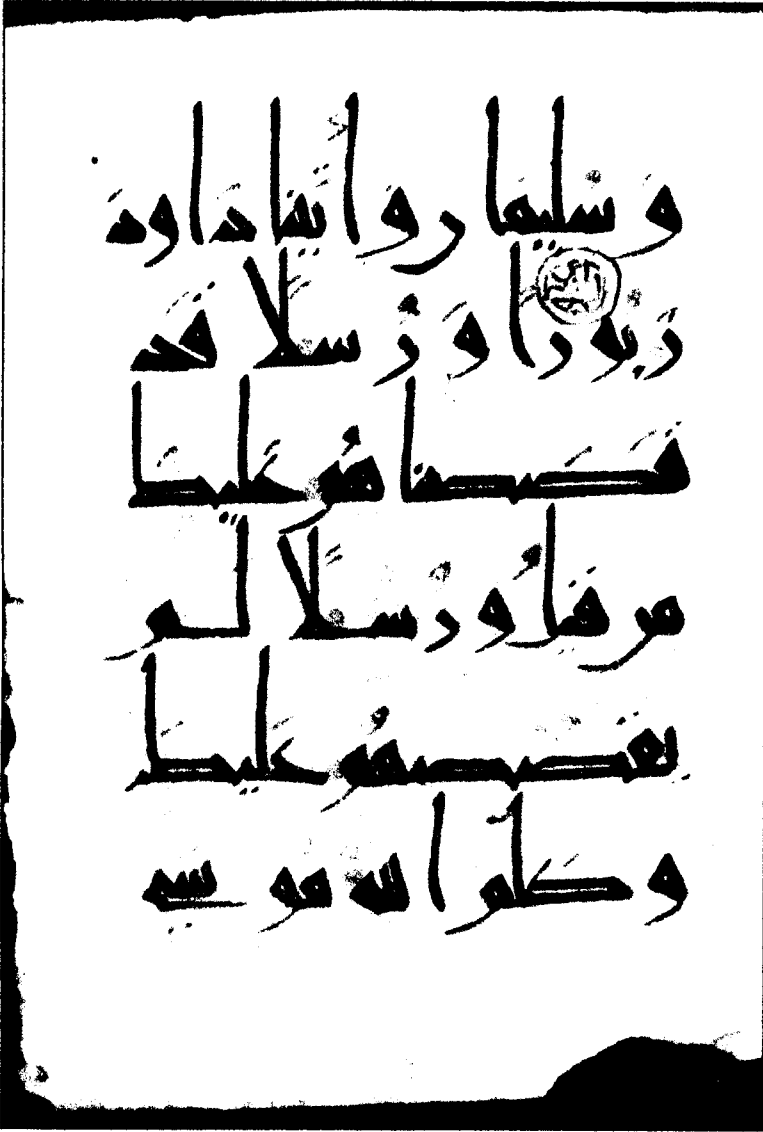 وسليمان واتينا داود
زبورا ورسلا قد
قصصناهم عليك
من قبل ورسلا لم
نقصصهم عليك
وكلم الله موسى